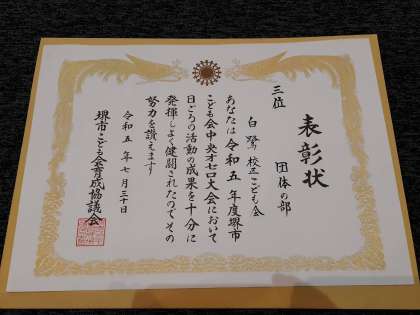 表彰状
団体の部
三位
白鷺校区こども会
あなたは令和五年度堺市
こども会中央オセロ大会において
日ごろの活動の成果を十分に
発揮しよく健闘されたのでその
努力を讃えます
令和五年七月三十日
堺市こども会育成協議会